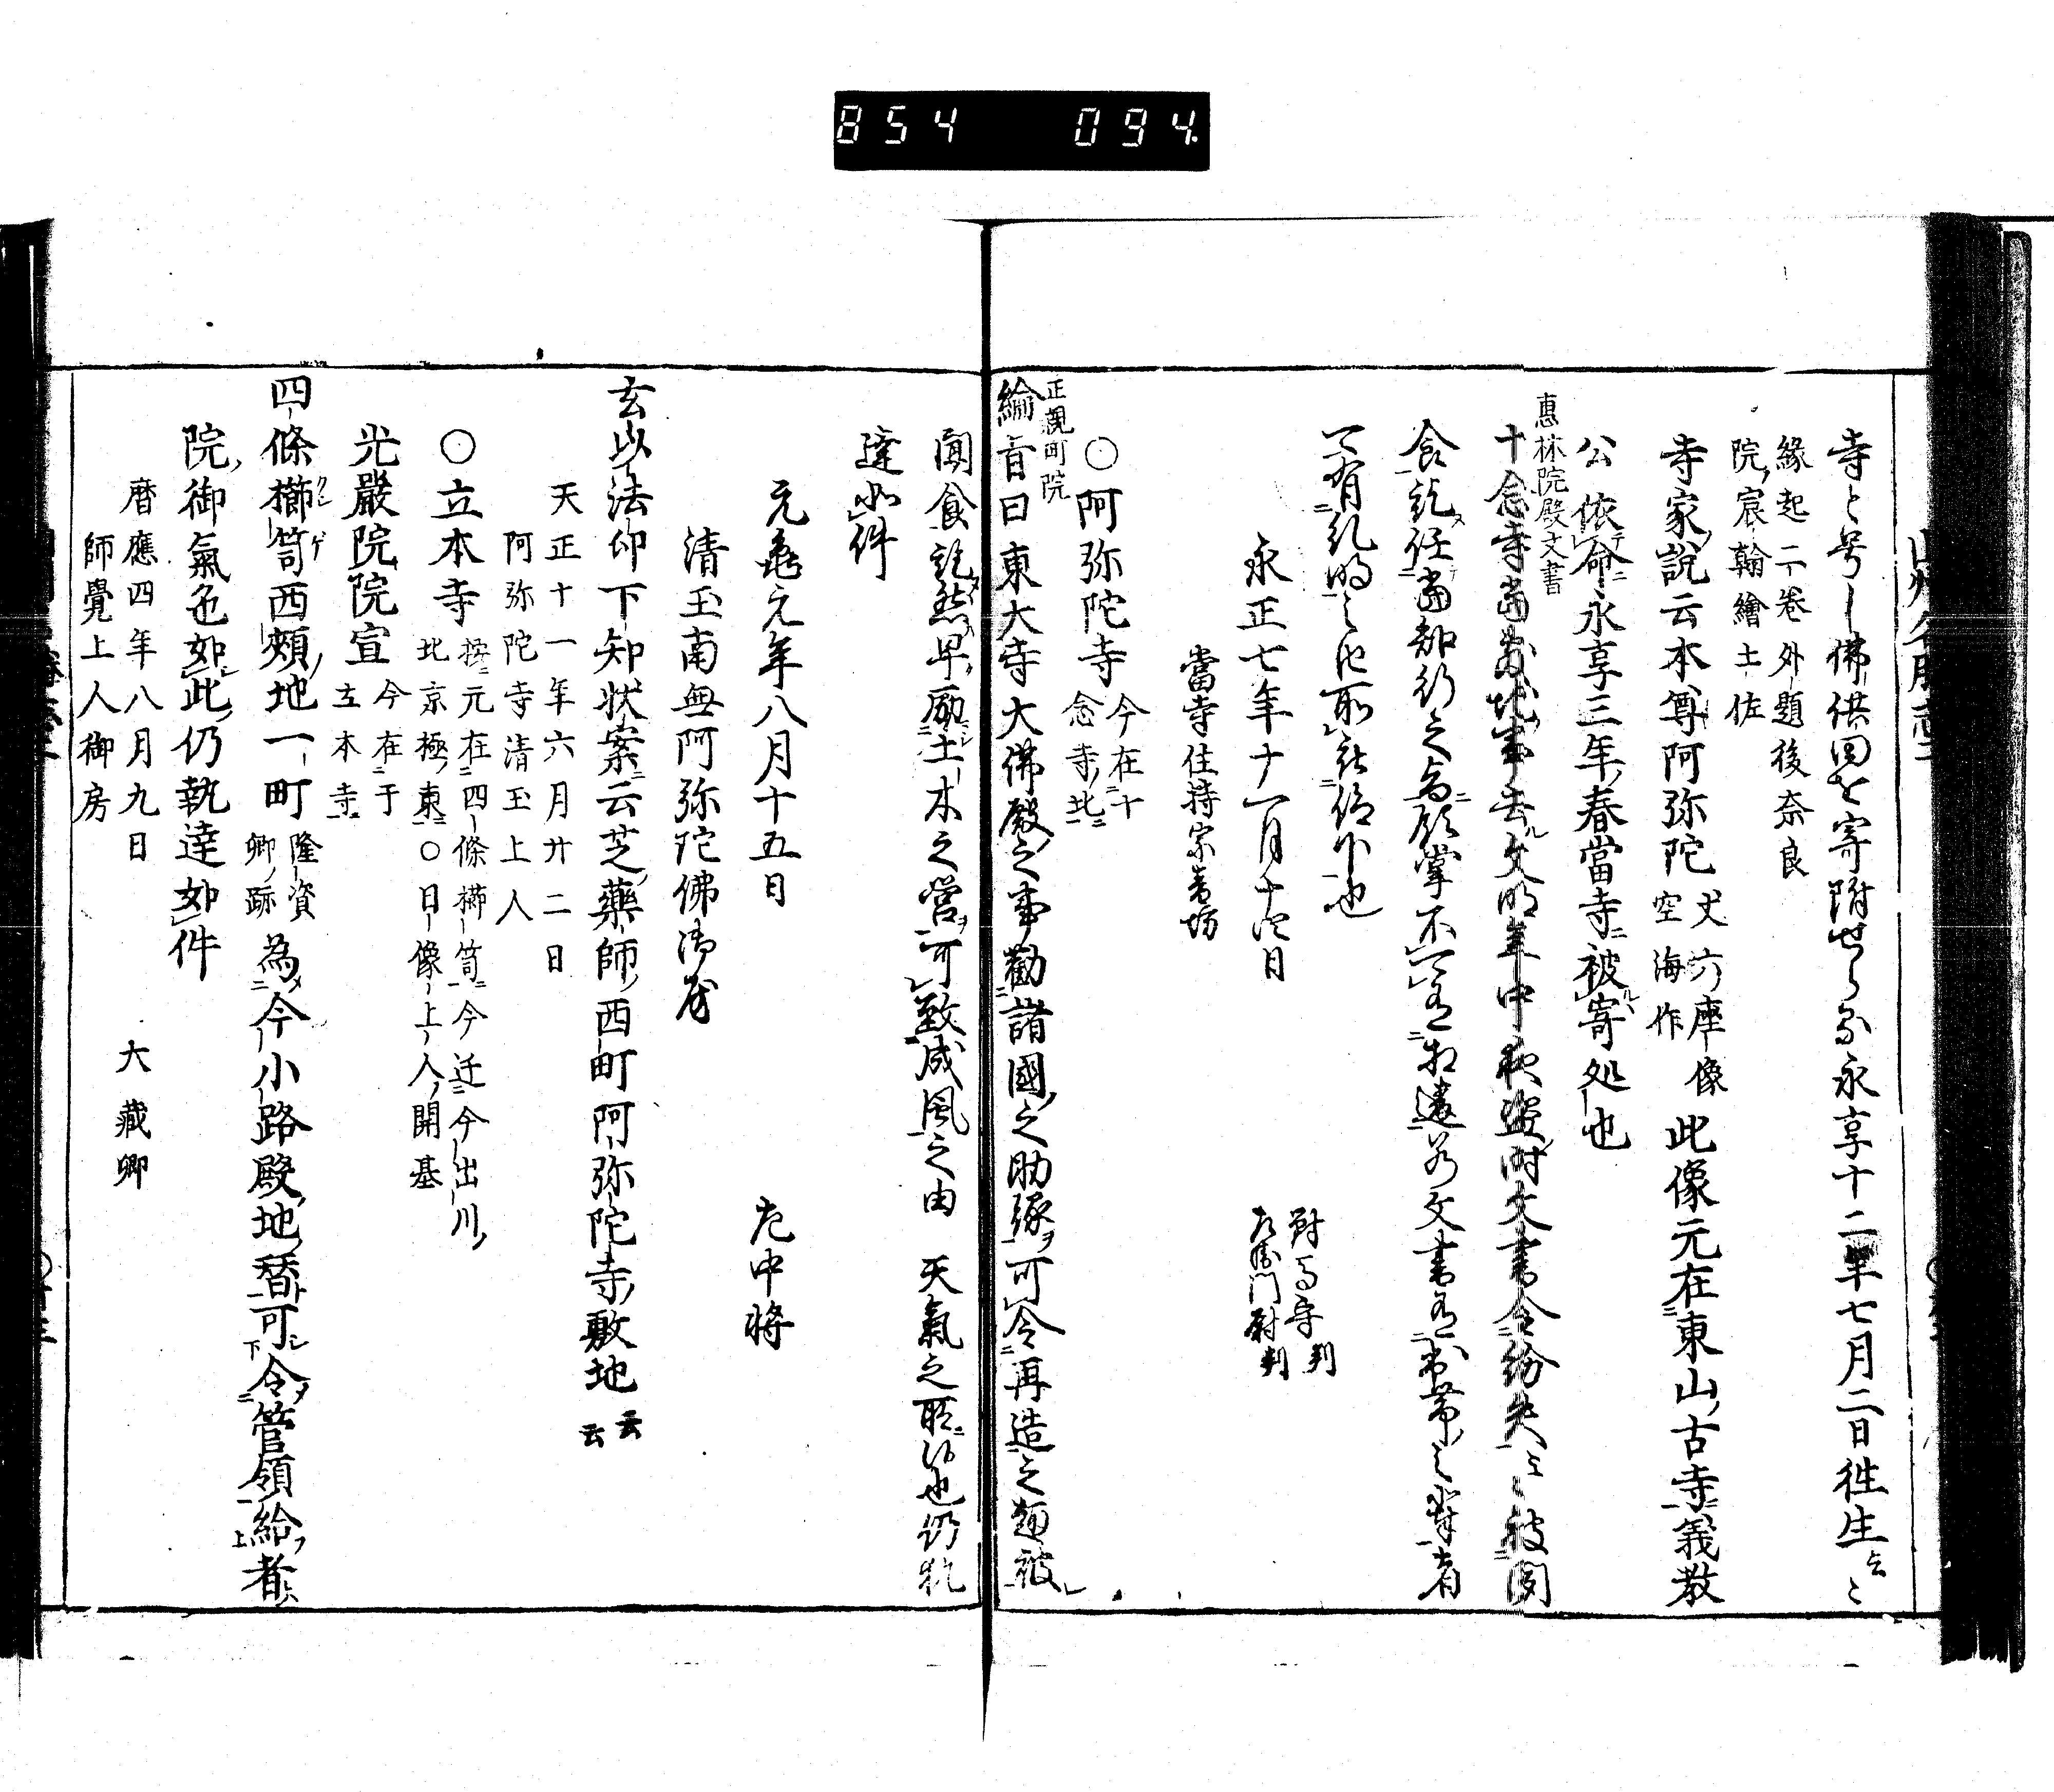 854 094
寺と号し佛供田を寄附せらる永享十二年七月二日徃生云々
緣起二卷外題後奈良
院宸翰繪土佐
寺家説云本尊阿弥陀丈六座像
空海作
此像元在東山古寺義教
公依命永享三年春當寺被寄処也
惠林院殿文書
十念寺當敷地事去文明年中夜盗時文書令紛失云々被聞
食訖任當知行之旨領掌不可有相違若文書有出帯之輩者
可有糺明之由所被仰下也
永正七年十一月十四日
對馬守判
左衛門尉判
當寺住持宗
○阿弥陀寺
今在十
念寺北
正親町院
綸旨曰東大寺大佛殿之事勸諸國之助縁可令再造之趣被
聞食訖然早勵土木之營可致成風之由 天氣之所候也仍執
達如件
元龜元年八月十五日 左中將
清玉南無阿弥陀佛御房
玄以法印下知状案云芝藥師西町阿弥陀寺敷地云云
天正十一年六月廿二日
阿弥陀寺清玉上人
○立本寺
按元在四條櫛笥今迁今出川
北京極東○日像上人開基
光嚴院院宣
今在于
立本寺
四條櫛笥西頰地一町
隆資
卿跡
為今小路殿地替可令管領給者
院御氣色如此仍執達如件
暦應四年八月九日 大藏卿
師覺上人御房